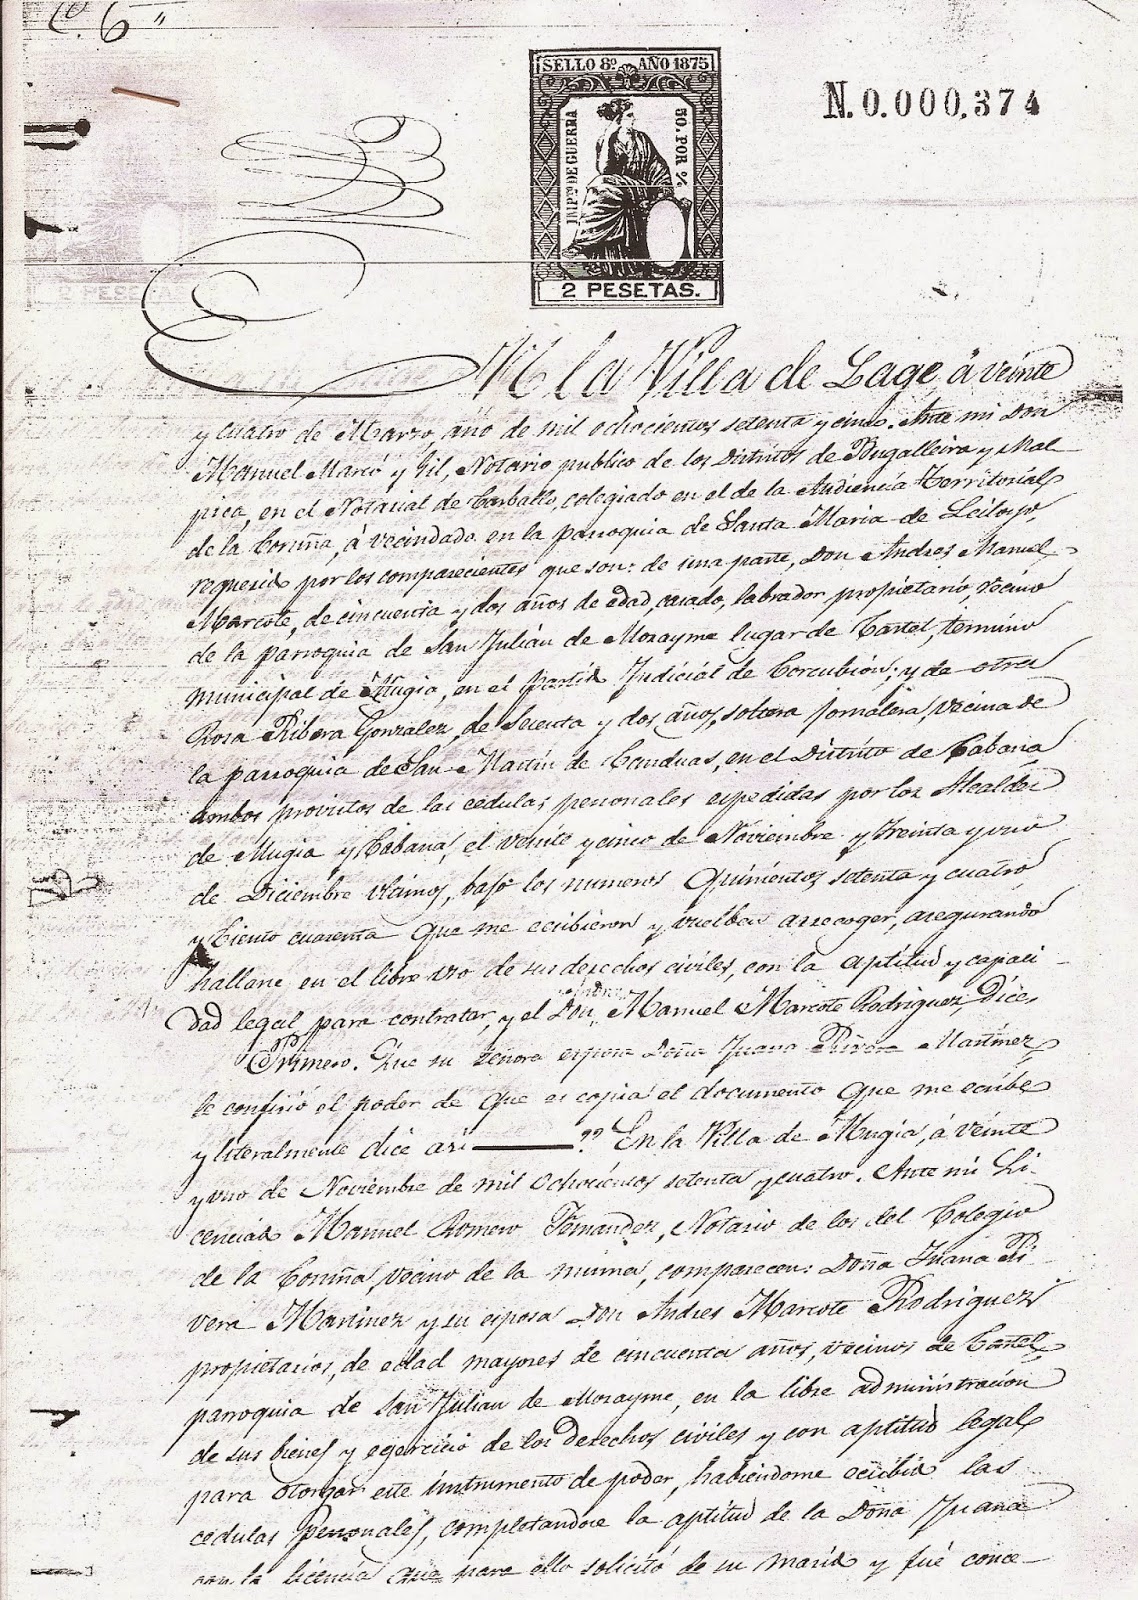 C. 6"
SELLO 8º AÑO 1875
IMPTO DE GUERRA
50. POR %
2 PESETAS.
N. 0.000,374
2 PESETAS
En la Villa de Lage, á veinte
y cuatro de Marzo, año de mil ochocientos setenta y cinco. Ante mi Don
Manuel Marcó y Gil, Notario publico de los Distritos de Bugalleira y Mal-
pica, en el Notarial de Carballo, colegiado en el de la Audiencia Territorial
de la Coruña, á vecindado en la parroquia de Santa Maria de Leiloyo,
requerido por los comparecientes que son: de una parte, Don Andres Manuel
Marcote, de cincuenta y dos años de edad, casado, labrador propietario, vecino
de la parroquia de San Julián de Morayme lugar de Cartel, termino
municipal de Mugia, en el partido Judicial de Corcubión; y de otra
Rosa Ribera Gonzalez, de Secenta y dos años, soltera jornalera, vecina de
la parroquia de San Martin de Canduas, en el Distrito de Cabana
ambos provistos de las cedulas personales espedidas por los Alcaldes
de Mugia y Cabana, el veinte y cinco de Noviembre y treinta y uno
de Diciembre ultimos, bajo los numeros Quinientos setenta y cuatro
y Ciento cuarenta que me ecsibieron y vuelben arrecoger, asegurando
hallarse en el libre uso de sus derechos civiles, con la aptitud y capaci-
dad legal para contratar, y el Don Andres Manuel Marcote Rodriguez, Dice.
Primero. Que su señora esposa Doña Juana Rivera Martinez,
le confirió el poder de que es copia el documento que me ecsibe
y literalmente dice asi — " En la Villa de Mugia, á veinte
y uno de Noviembre de mil ochocientos setenta y cuatro. Ante mi Li-
cenciado Manuel Romero Fernandez, Notario de los del Colegio
de la Coruña, vecino de la misma, comparecen: Doña Juana Ri-
vera Martinez y su esposo Don Andres Marcote Rodriguez
propietarios, de edad mayores de cincuenta años, vecinos de Cartel,
parroquia de San Julian de Morayme, en la libre administracion
de sus bienes y egercicio de los derechos civiles y con aptitud legal
para otorgar este instrumento de poder, habiendome ecsibido las
cedulas personales, completandose la aptitud de la Doña Juana
con la licencia que para ello solicitó de su marido y fué conce-